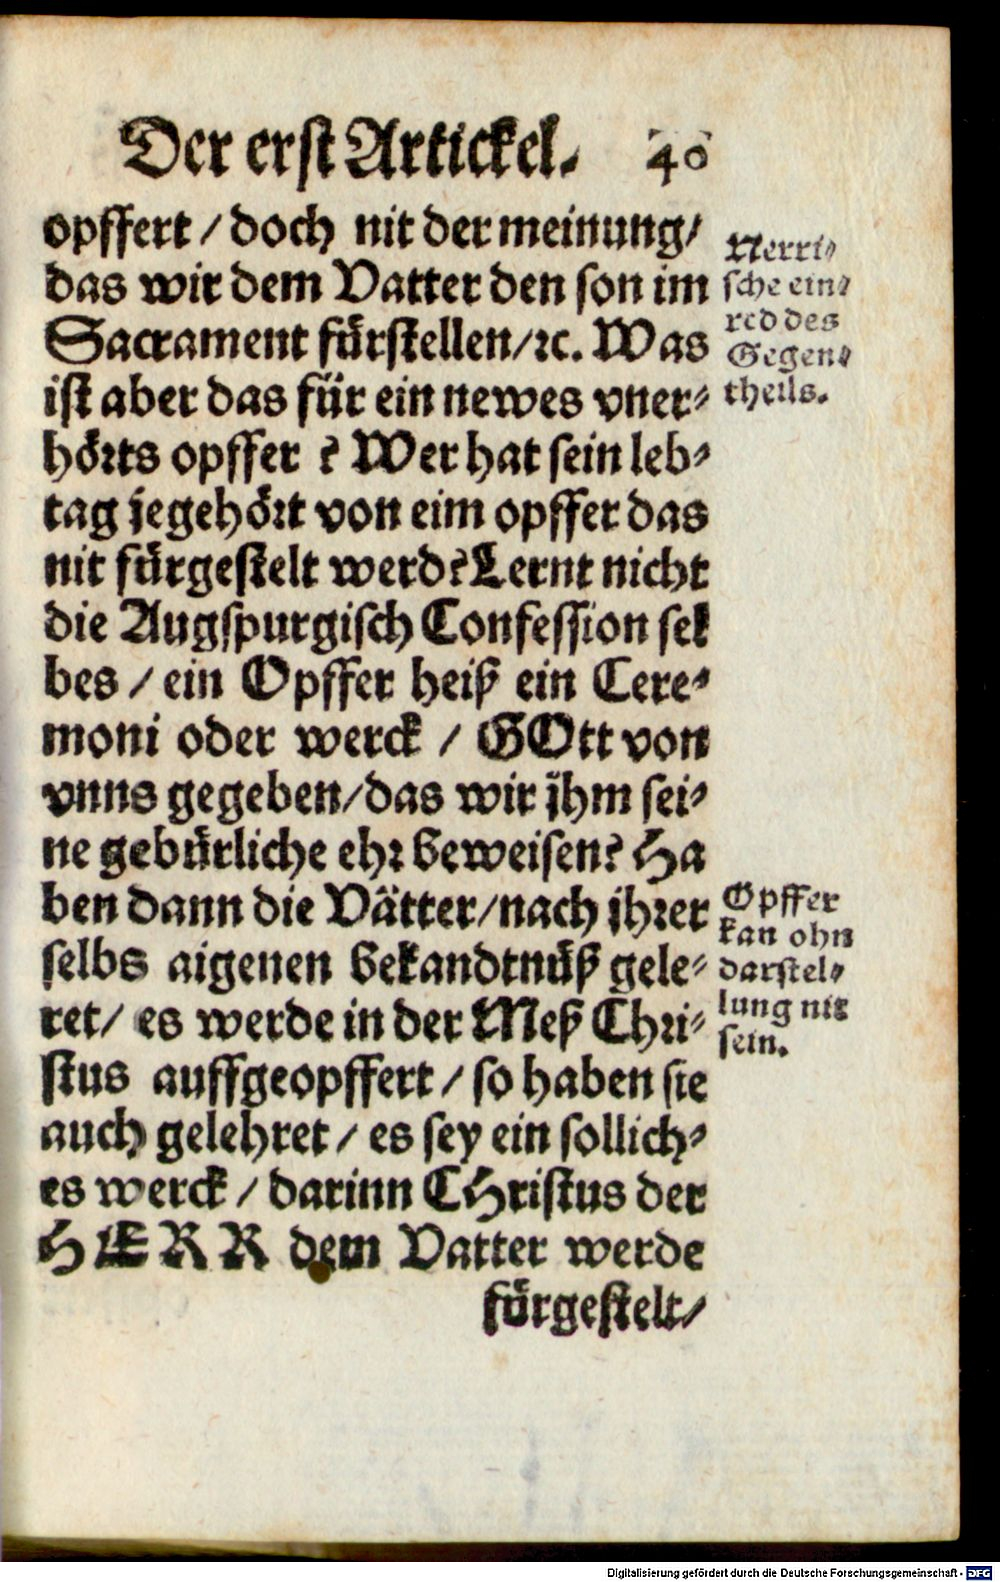 Der erst Artickel. 40
opffert / doch nit der meinung/
das wir dem Vatter den son im
Sacrament fürstellen/ꝛc. Was
ist aber das für ein newes vner⸗
hörts opffer ? Wer hat sein leb⸗
tag jegehört von eim opffer das
nit fürgestelt werd? Lernt nicht
die Augspurgisch Confession sel
bes / ein Opffer heiß ein Cere⸗
moni oder werck / GOtt von
vnns gegeben/das wir jhm sei⸗
ne gebürliche ehr beweisen? Ha
ben dann die Vätter/nach jhrer
selbs aigenen bekandtnüß gele⸗
ret/ es werde in der Meß Chri⸗
stus auffgeopffert / so haben sie
auch gelehret / es sey ein sollich⸗
es werck / darinn CHristus der
HERR dem Vatter werde
fürgestelt/
Nerri⸗
sche ein⸗
red des
Gegen⸗
theils.
Opffer
kan ohn
darstel⸗
lung nit
sein.
Digitalisierung gefördert durch die Deutsche Forschungsgemeinschaft - DFG